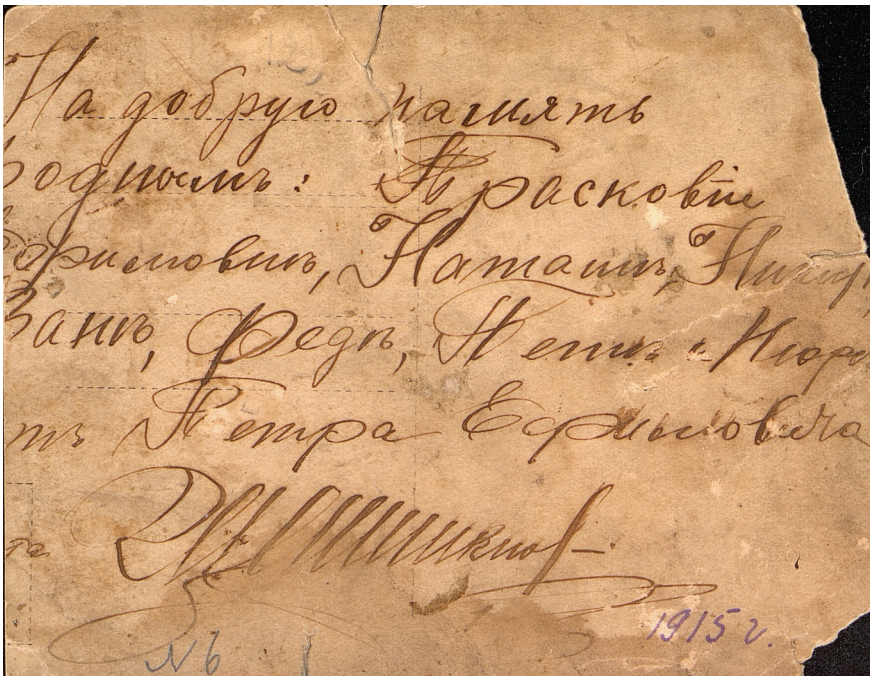 На добрую память
Роднымъ: Прасковіи
Ефимовнѣ, Наташѣ,
Ванѣ, Федѣ, Петѣ и Нюрѣ
тъ Петра Ефимовича
1915 г.
№ 6